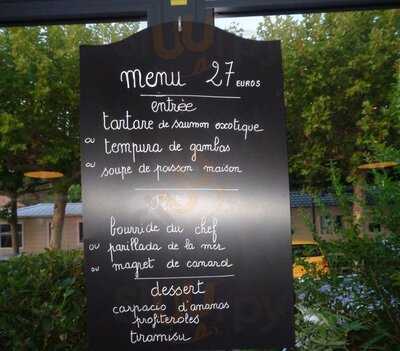 menu 27 EUROS
entrée
tartare de saumon exotique
ou tempura de gambas
ou soupe de poisson maison
bourride du chef
ou parillada de la mer
ou magret de canard
dessert
carpacio d'ananas
profiteroles
tiramisu